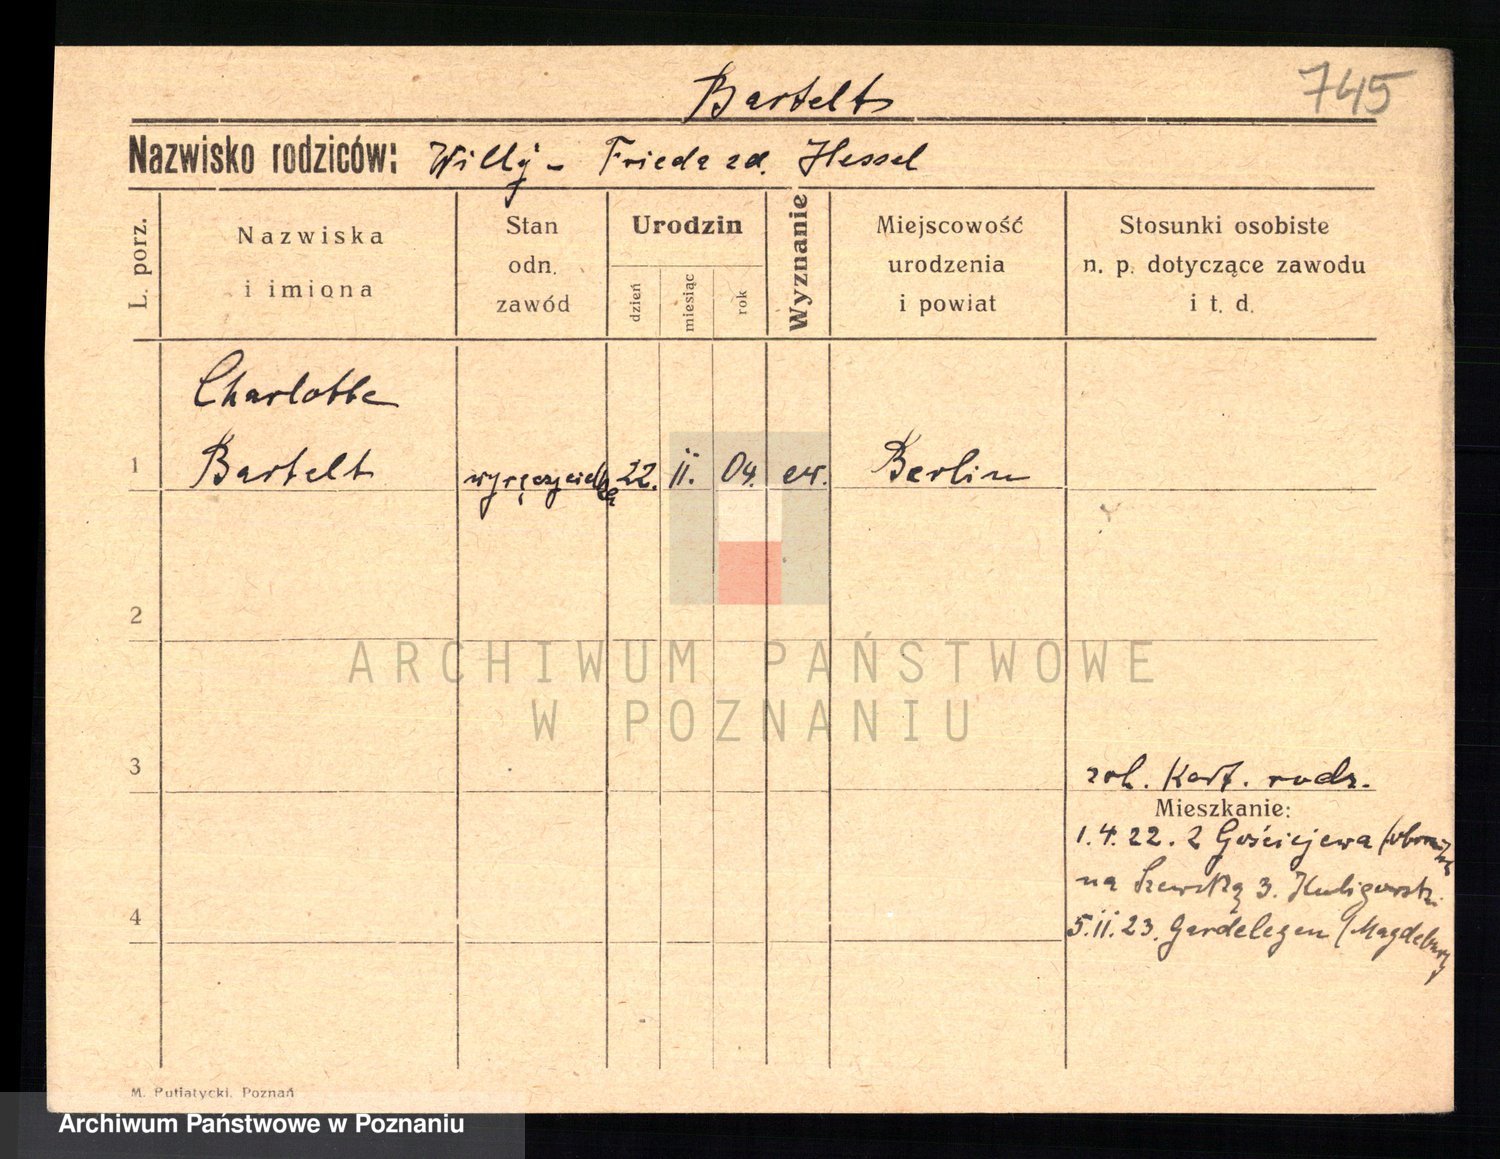 745
Bartelt
Nazwisko rodziców: Willy - Frieda zd. Hessel
L. porz.
Nazwiska
i imiona
Stan
odn.
zawód
Urodzin
dzień
miesiąc
rok
Wyznanie
Miejscowość
urodzenia
i powiat
Stosunki osobiste
n. p. dotyczące zawodu
i t. d.
Charlotte
1 Bartelt 22. II. 04. ew. Berlin
2
ARCHIWUM PAŃSTWOWE
W POZNANIU
3
rodz.
Mieszkanie:
1.4.22. 2 Gościejewa
na Szewską 3. Kuligowski
4
5.II.23. Gardelegen (Magdeburg
M. Putiatycki. Poznań
Archiwum Państwowe w Poznaniu